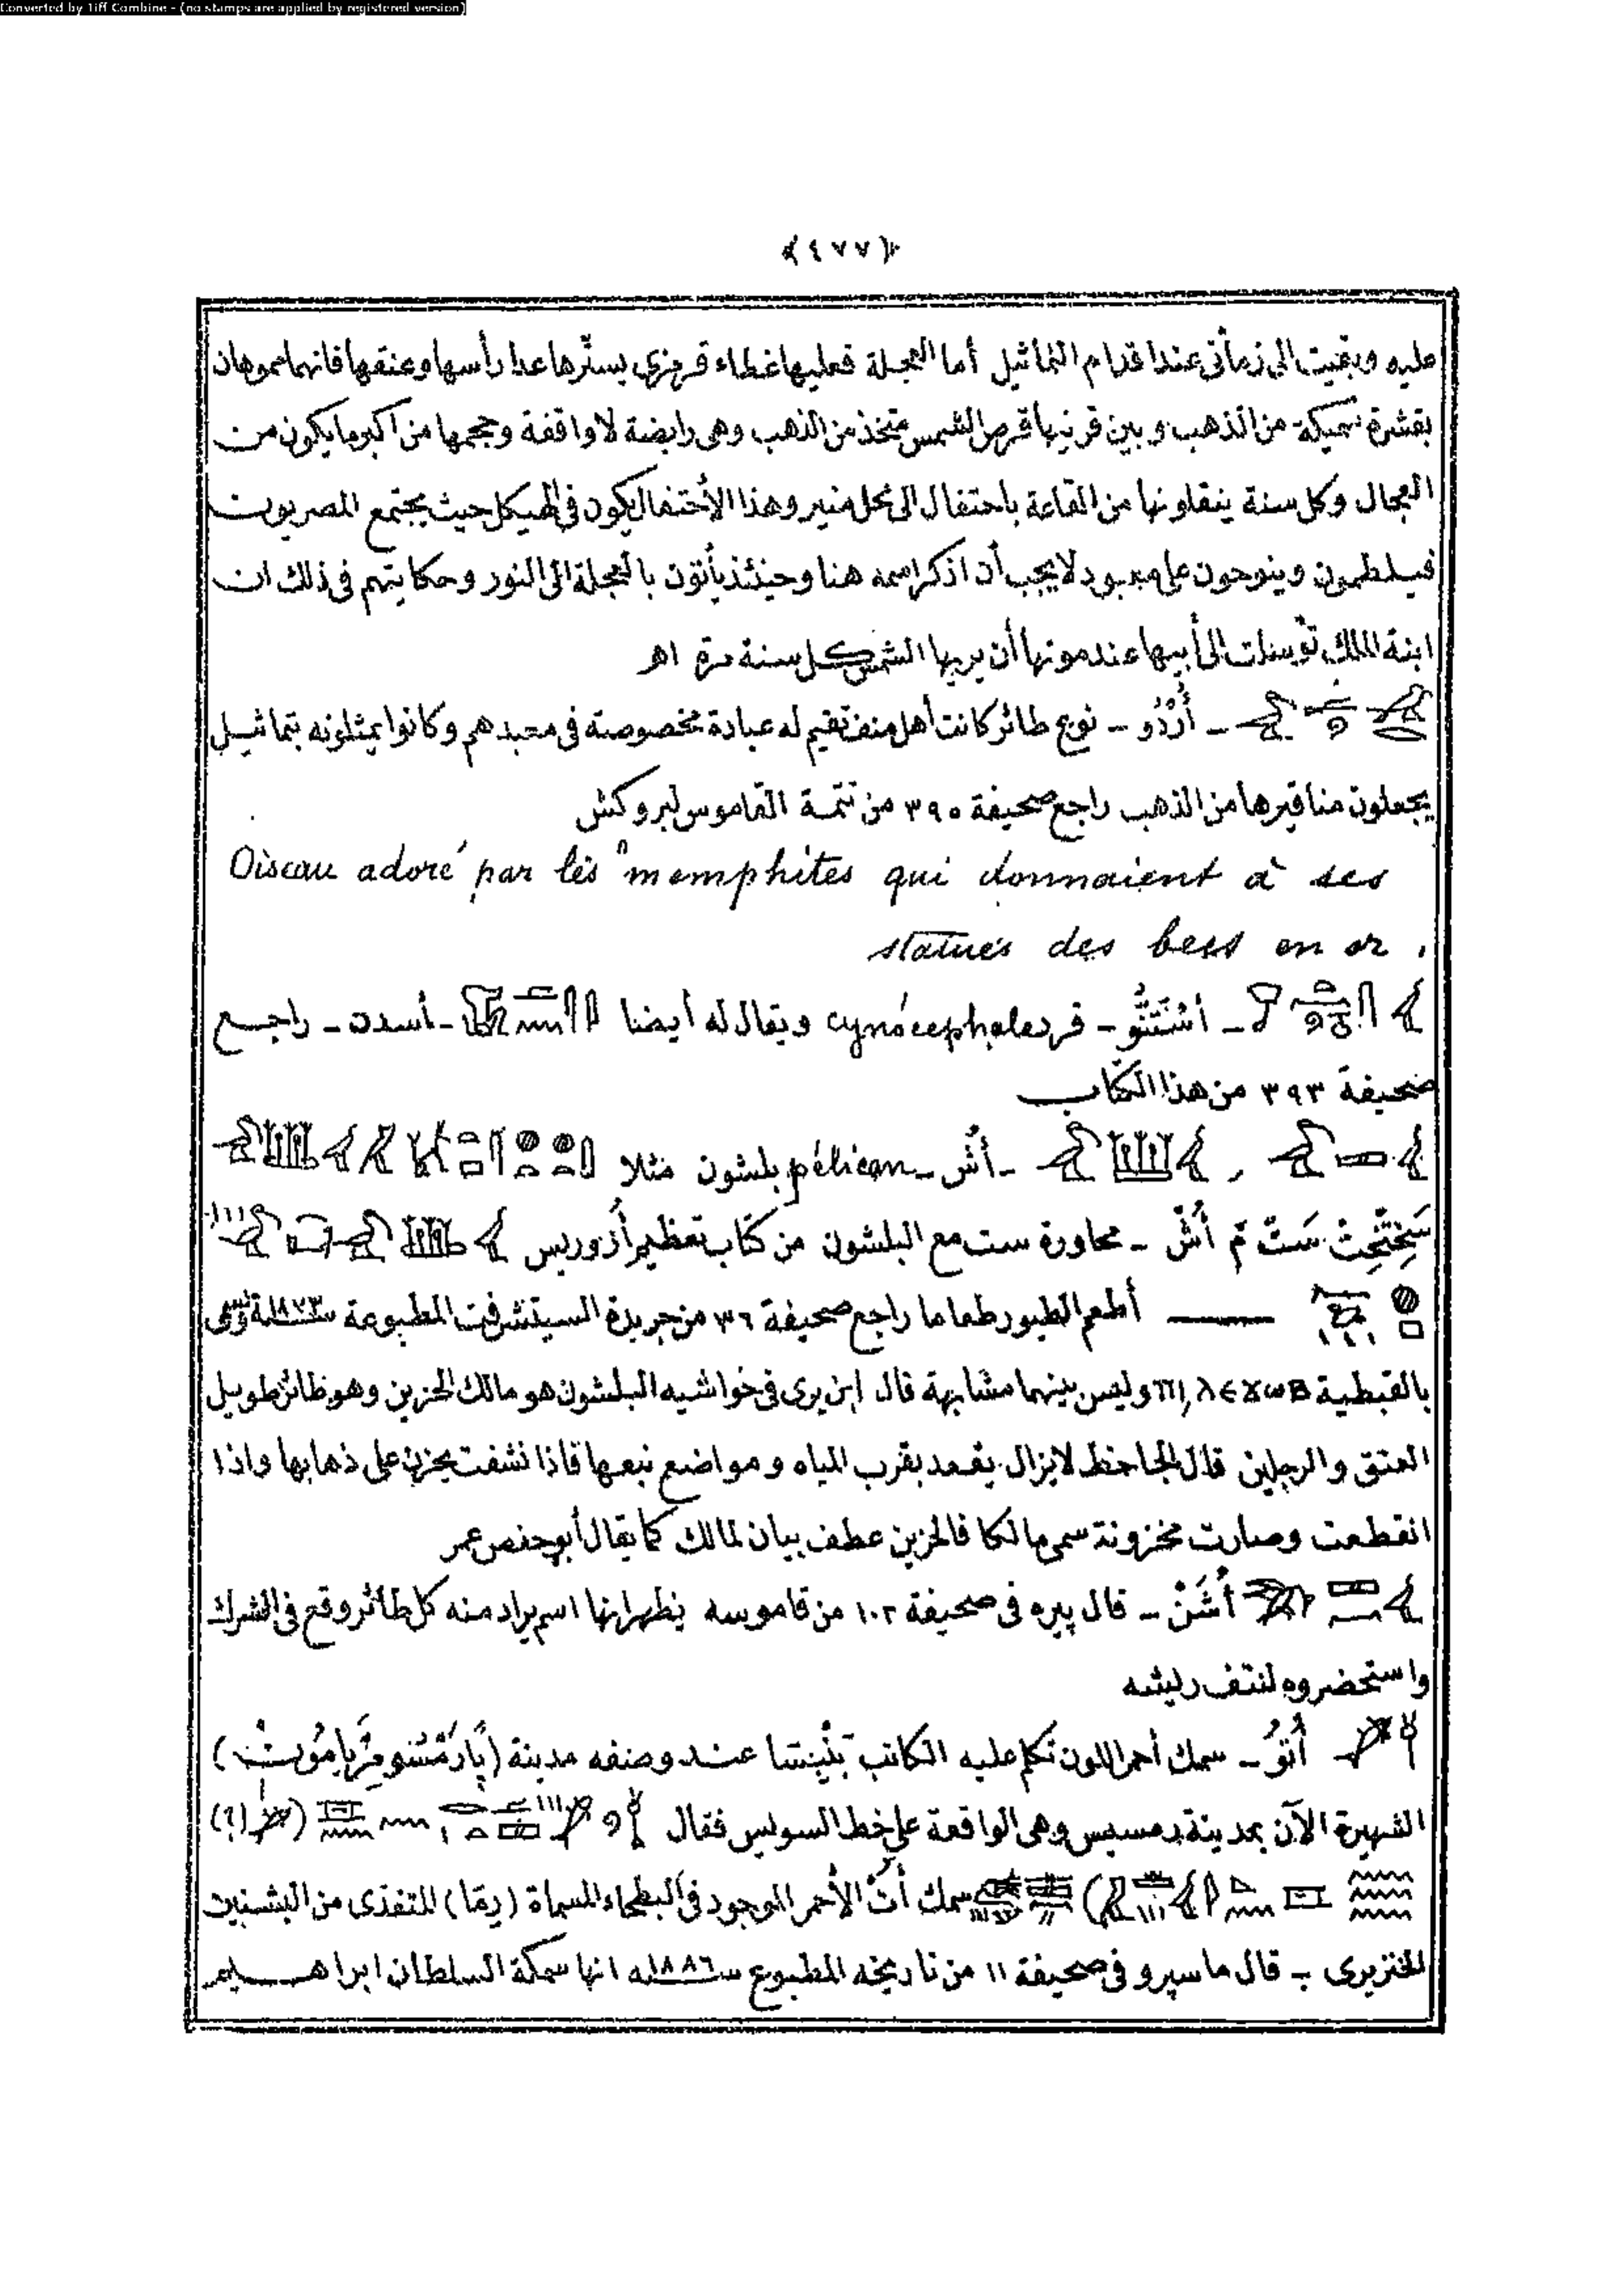 Converted by Tiff Combine - (no stamps are applied by registered version)
﴿٤٧٧﴾
عليه وبقيت الى زمانى عند اقدام التماثيل أما العجلة فعليها غطاء قرمزى يسترها عدا رأسها وعنقها فانهما مموهان
بقشرة سميكة من الذهب وبين قرنيها قرص الشمس متخذ من الذهب وهى رابضة لا واقفة وحجمها من اكبر ما يكون من
العجال وكل سنة ينقلونها من القاعة باحتفال الى محل منير وهذا الأحتفال يكون فى الهيكل حيث يجتمع المصريون
فيلطمون وينوحون على معبود لا يجب أن اذكر اسمه هنا وحينئذ يأتون بالعجلة الى النور وحكايتهم فى ذلك ان
ابنة الملك توسلت الى أبيها عند موتها أن يريها الشمس كل سنة مرة اهـ
ـ أُرْدُو ـ نوع طائر كانت أهل منف تقيم له عبادة مخصوصة فى معبدهم وكانوا يمثلونه بتماثيل
يجعلون مناقيرها من الذهب راجع صحيفة ٣٩٠ من تتمة القاموس لبروكش
Oiseau adoré par les memphites qui donnaient à ses
statues des becs en or.
ـ أسْتَنُّو ـ قرد cynocephale ويقال له أيضا ـ أسدن ـ راجع
صحيفة ٣٩٣ من هذا الكتاب
ـ أش ـ pélican بلشون مثلا
سَخِتْحِتْ سَتْ مَ أُشْ ـ محاورة ست مع البلشون من كتاب تعظيم أزوريس
أطعم الطيور طعاما راجع صحيفة ٣٦ من جريدة السيتشرفت المطبوعة سنة ١٨٧٣
بالقبطية وليس بينهما مشابهة قال ابن برى فى حواشيه البلشون هو مالك الحزين وهو طائر طويل
العنق والرجلين قال الجاحظ لا يزال يقعد بقرب المياه ومواضع نبعها فاذا نشفت يحزن على ذهابها واذا
انقطعت وصارت مخزونة سمى مالكا فالحزين عطف بيان لمالك كما يقال أبو حفص عمر
أُشَنْ ـ قال پيره فى صحيفة ١٠٢ من قاموسه يظهر انها اسم يراد منه كل طائر وقع فى الشرك
واستحضروه لنتف ريشه
أُتو ـ سمك أحمر اللون تكلم عليه الكاتب عند وصفه مدينة
الشهيرة الآن بمدينة رمسيس وهى الواقعة على خط السويس فقال (؟)
سمك أت الأحمر الموجود فى البطحاء المسماة المتغذى من البشنين
الخنزيرى ـ قال ماسپرو فى صحيفة ١١ من تاريخه المطبوع سنة ١٨٨٦ انها سمكة السلطان ابراهيم